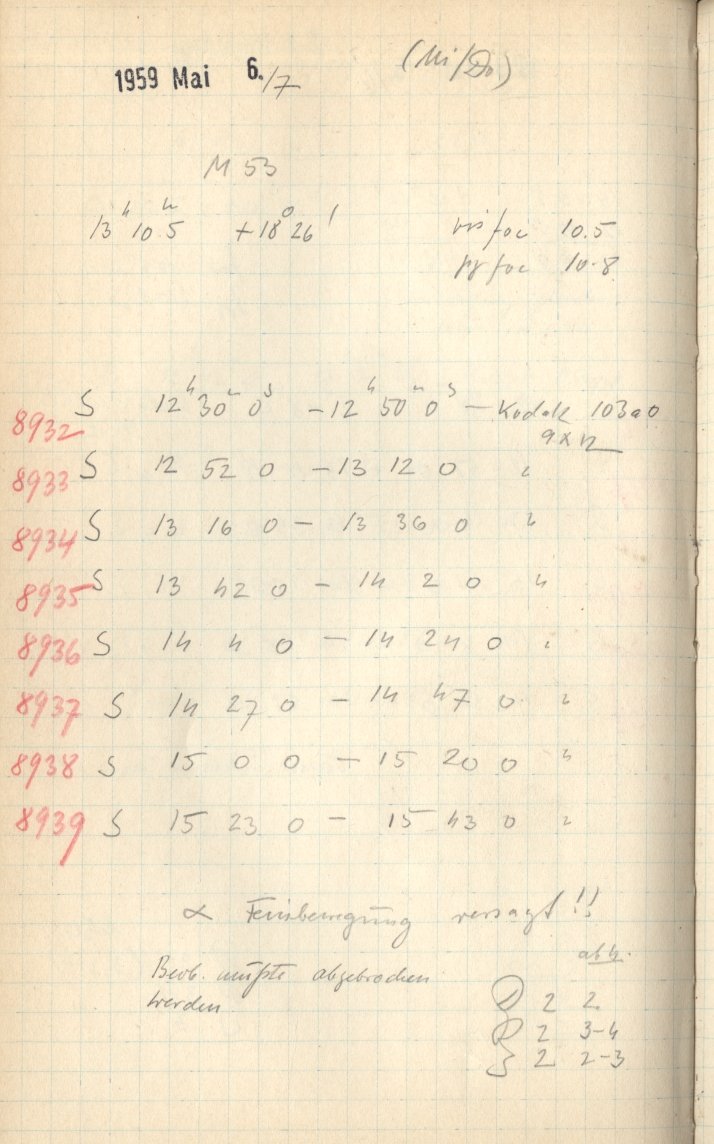 1959 Mai 6./7 (Mi/Do)
M 53
13ʰ 10ᵐ5 +18° 26' vis foc 10.5
pg foc 10.8
8932 S 12ʰ 30ᵐ 0ˢ – 12ʰ 50ᵐ 0ˢ – Kodak 103a0
9x12
8933 S 12 52 0 – 13 12 0 "
8934 S 13 16 0 – 13 36 0 "
8935 S 13 42 0 – 14 2 0 "
8936 S 14 4 0 – 14 24 0 "
8937 S 14 27 0 – 14 47 0 "
8938 S 15 0 0 – 15 20 0 "
8939 S 15 23 0 – 15 43 0 "
α Feinbewegung versagt!!
Beob. mußte abgebrochen
werden
2 2
2 3-4
2 2-3